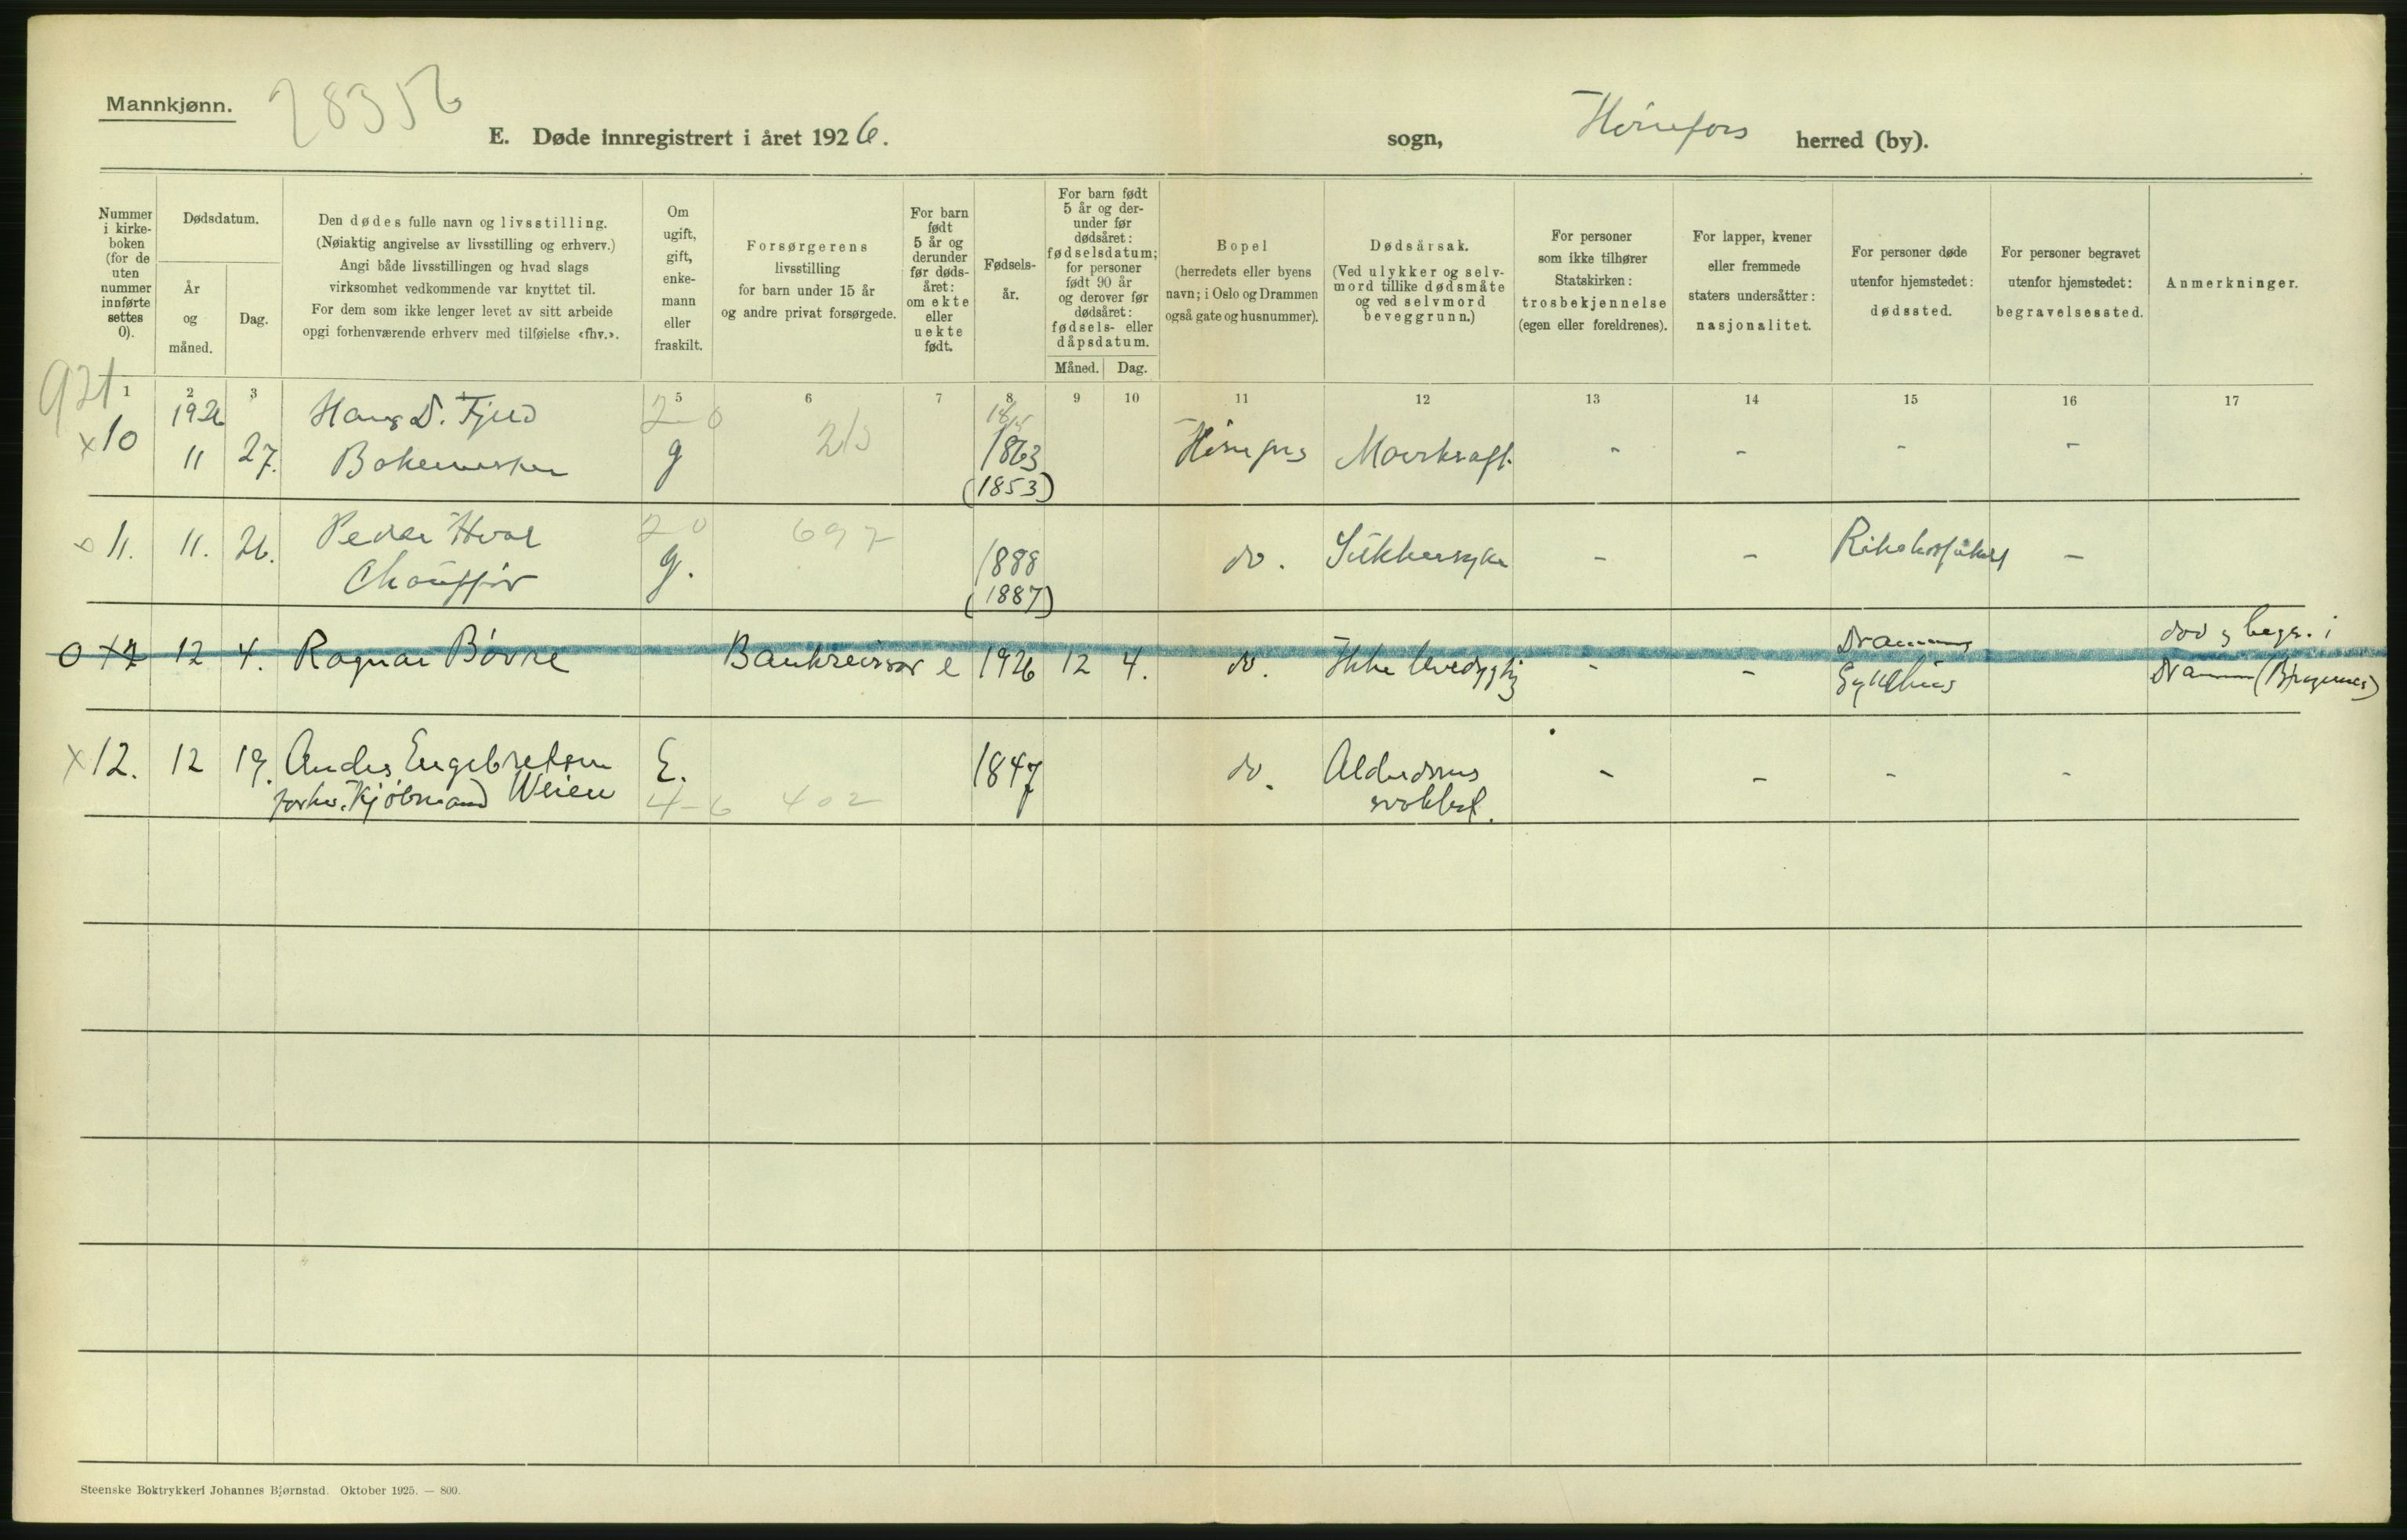 Mannkjønn.
28356
E. Døde innregistrert i året 1926.
sogn, Hønefoss herred (by).
Nummer i kirke- boken (for de uten nummer innførte settes 0).
Dødsdatum.
År og måned.
Dag.
Den dødes fulle navn og livsstilling.
(Nøiaktig angivelse av livsstilling og erhverv.)
Angi både livsstillingen og hvad slags
virksomhet vedkommende var knyttet til.
For dem som ikke lenger levet av sitt arbeide
opgi forhenværende erhverv med tilføielse «fhv.».
Om ugift, gift, enke- mann eller fraskilt.
Forsørgerens
livsstilling
for barn under 15 år
og andre privat forsørgede.
For barn født 5 år og derunder før døds- året: om ekte eller uekte født.
Fødsels- år.
For barn født 5 år og der- under før dødsåret: fødselsdatum; for personer født 90 år og derover før dødsåret: fødsels- eller dåpsdatum.
Måned. Dag.
Bopel
(herredets eller byens
navn; i Oslo og Drammen
også gate og husnummer).
Dødsårsak.
(Ved ulykker og selv-
mord tillike dødsmåte
og ved selvmord
beveggrunn.)
For personer
som ikke tilhører
Statskirken:
trosbekjennelse
(egen eller foreldrenes).
For lapper, kvener
eller fremmede
staters undersåtter:
nasjonalitet.
For personer døde
utenfor hjemstedet:
dødssted.
For personer begravet
utenfor hjemstedet:
begravelsessted.
Anmerkninger.
1 2 3 5 6 7 8 9 10 11 12 13 14 15 16 17
921 1926 Hans D. Fjeld 2 0
×10 11 27. g 213 1863 Hønefoss - - - -
(1853)
11. 11. 26. Peder Hval 20 697
Chauffør g. 1888 do. Sukkersyke - - Rikshospitalet -
(1887)
0 12 12 4. Ragnar Bøvre Bankrevisor e 1926 12 4. do. Ikke levedygtig - - Drammens Sykehus død og begr. i
Drammen (Bragernes)
×12. 12 19. Anders Engebretsen E. 1847 do. Alderdoms - - - -
forhv. Kjøbmand Weien 4-6 402
Steenske Boktrykkeri Johannes Bjørnstad. Oktober 1925. — 800.